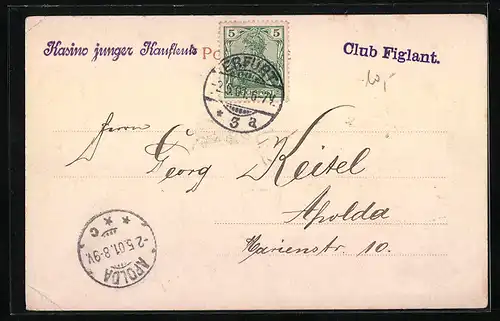 Kasino junger Kaufleute
Po
Club Figlant.
5 5
ERFURT
* 3 a
Herrn
Georg Keitel
Apolda
Marienstr 10.
* * C
-2.5.01.8-9V.
APOLDA